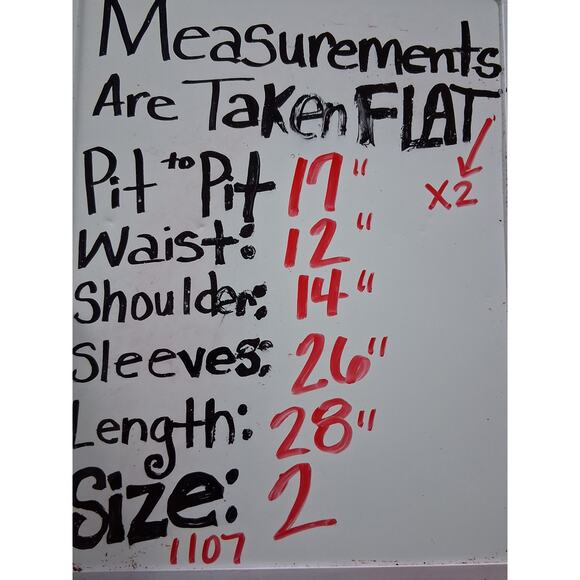 Measurements
Are Taken FLAT
x2
Pit to Pit 17"
Waist: 12"
Shoulder: 14"
Sleeves: 26"
Length: 28"
Size: 2
1107